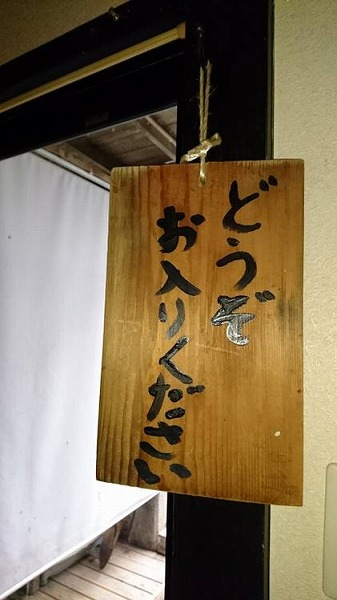 どうぞ
お入りください